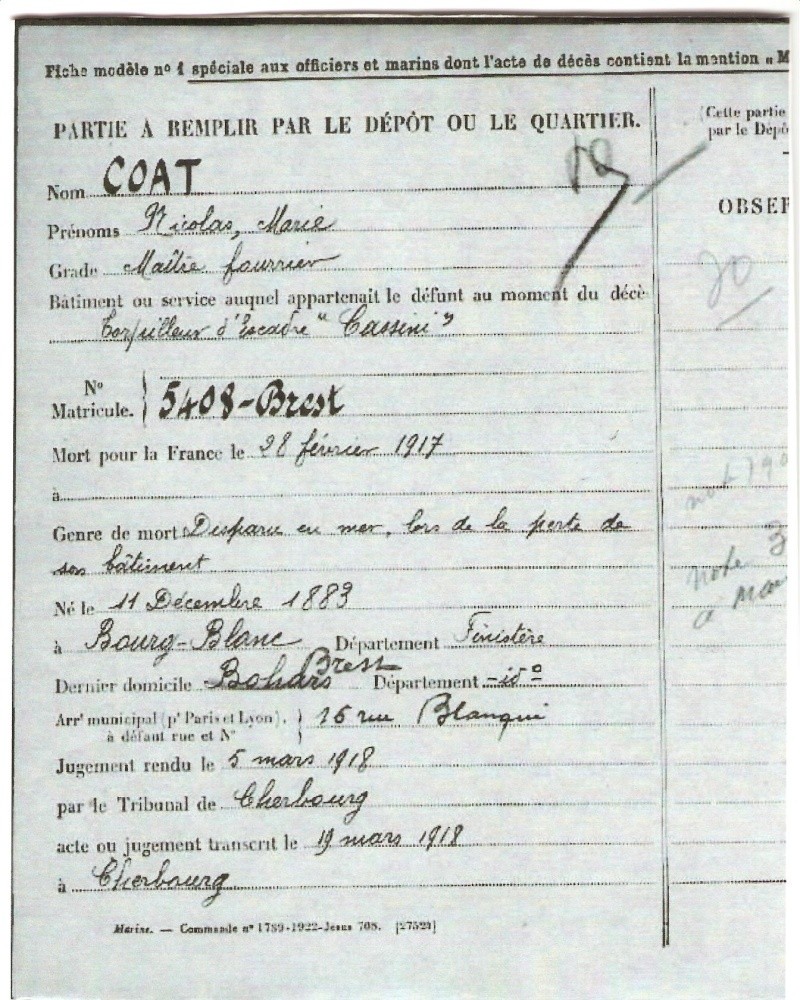 Fiche modèle nº 1 spéciale aux officiers et marins dont l'acte de décès contient la mention « M
PARTIE A REMPLIR PAR LE DÉPÔT OU LE QUARTIER.
Nom COAT
Prénoms Nicolas, Marie
Grade Maître fourrier
Bâtiment ou service auquel appartenait le défunt au moment du décè
Torpilleur d'Escadre "Cassini"
Nº Matricule. 5408-Brest
Mort pour la France le 28 février 1917
à
Genre de mort Disparu en mer, lors de la perte de
son bâtiment
Né le 11 Décembre 1883
à Bourg-Blanc Département Finistère
Brest
Dernier domicile Bohars Département -idº
Arrt municipal (pr Paris et Lyon), à défaut rue et Nº 16 rue Blanqui
Jugement rendu le 5 mars 1918
par le Tribunal de Cherbourg
acte ou jugement transcrit le 19 mars 1918
à Cherbourg
Marine. — Commande nº 1789-1922-Jésus 708. [27524]
(Cette partie
par le Dépô
OBSER
note 3